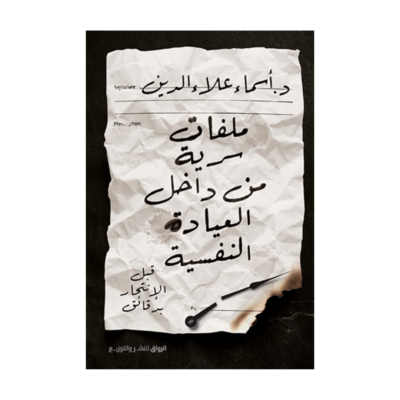 د. أسماء علاء الدين
ملفات
سرية
من داخل
العيادة
النفسية
قبل
الإنتحار
بدقائق
الرواق للنشر والتوزيع